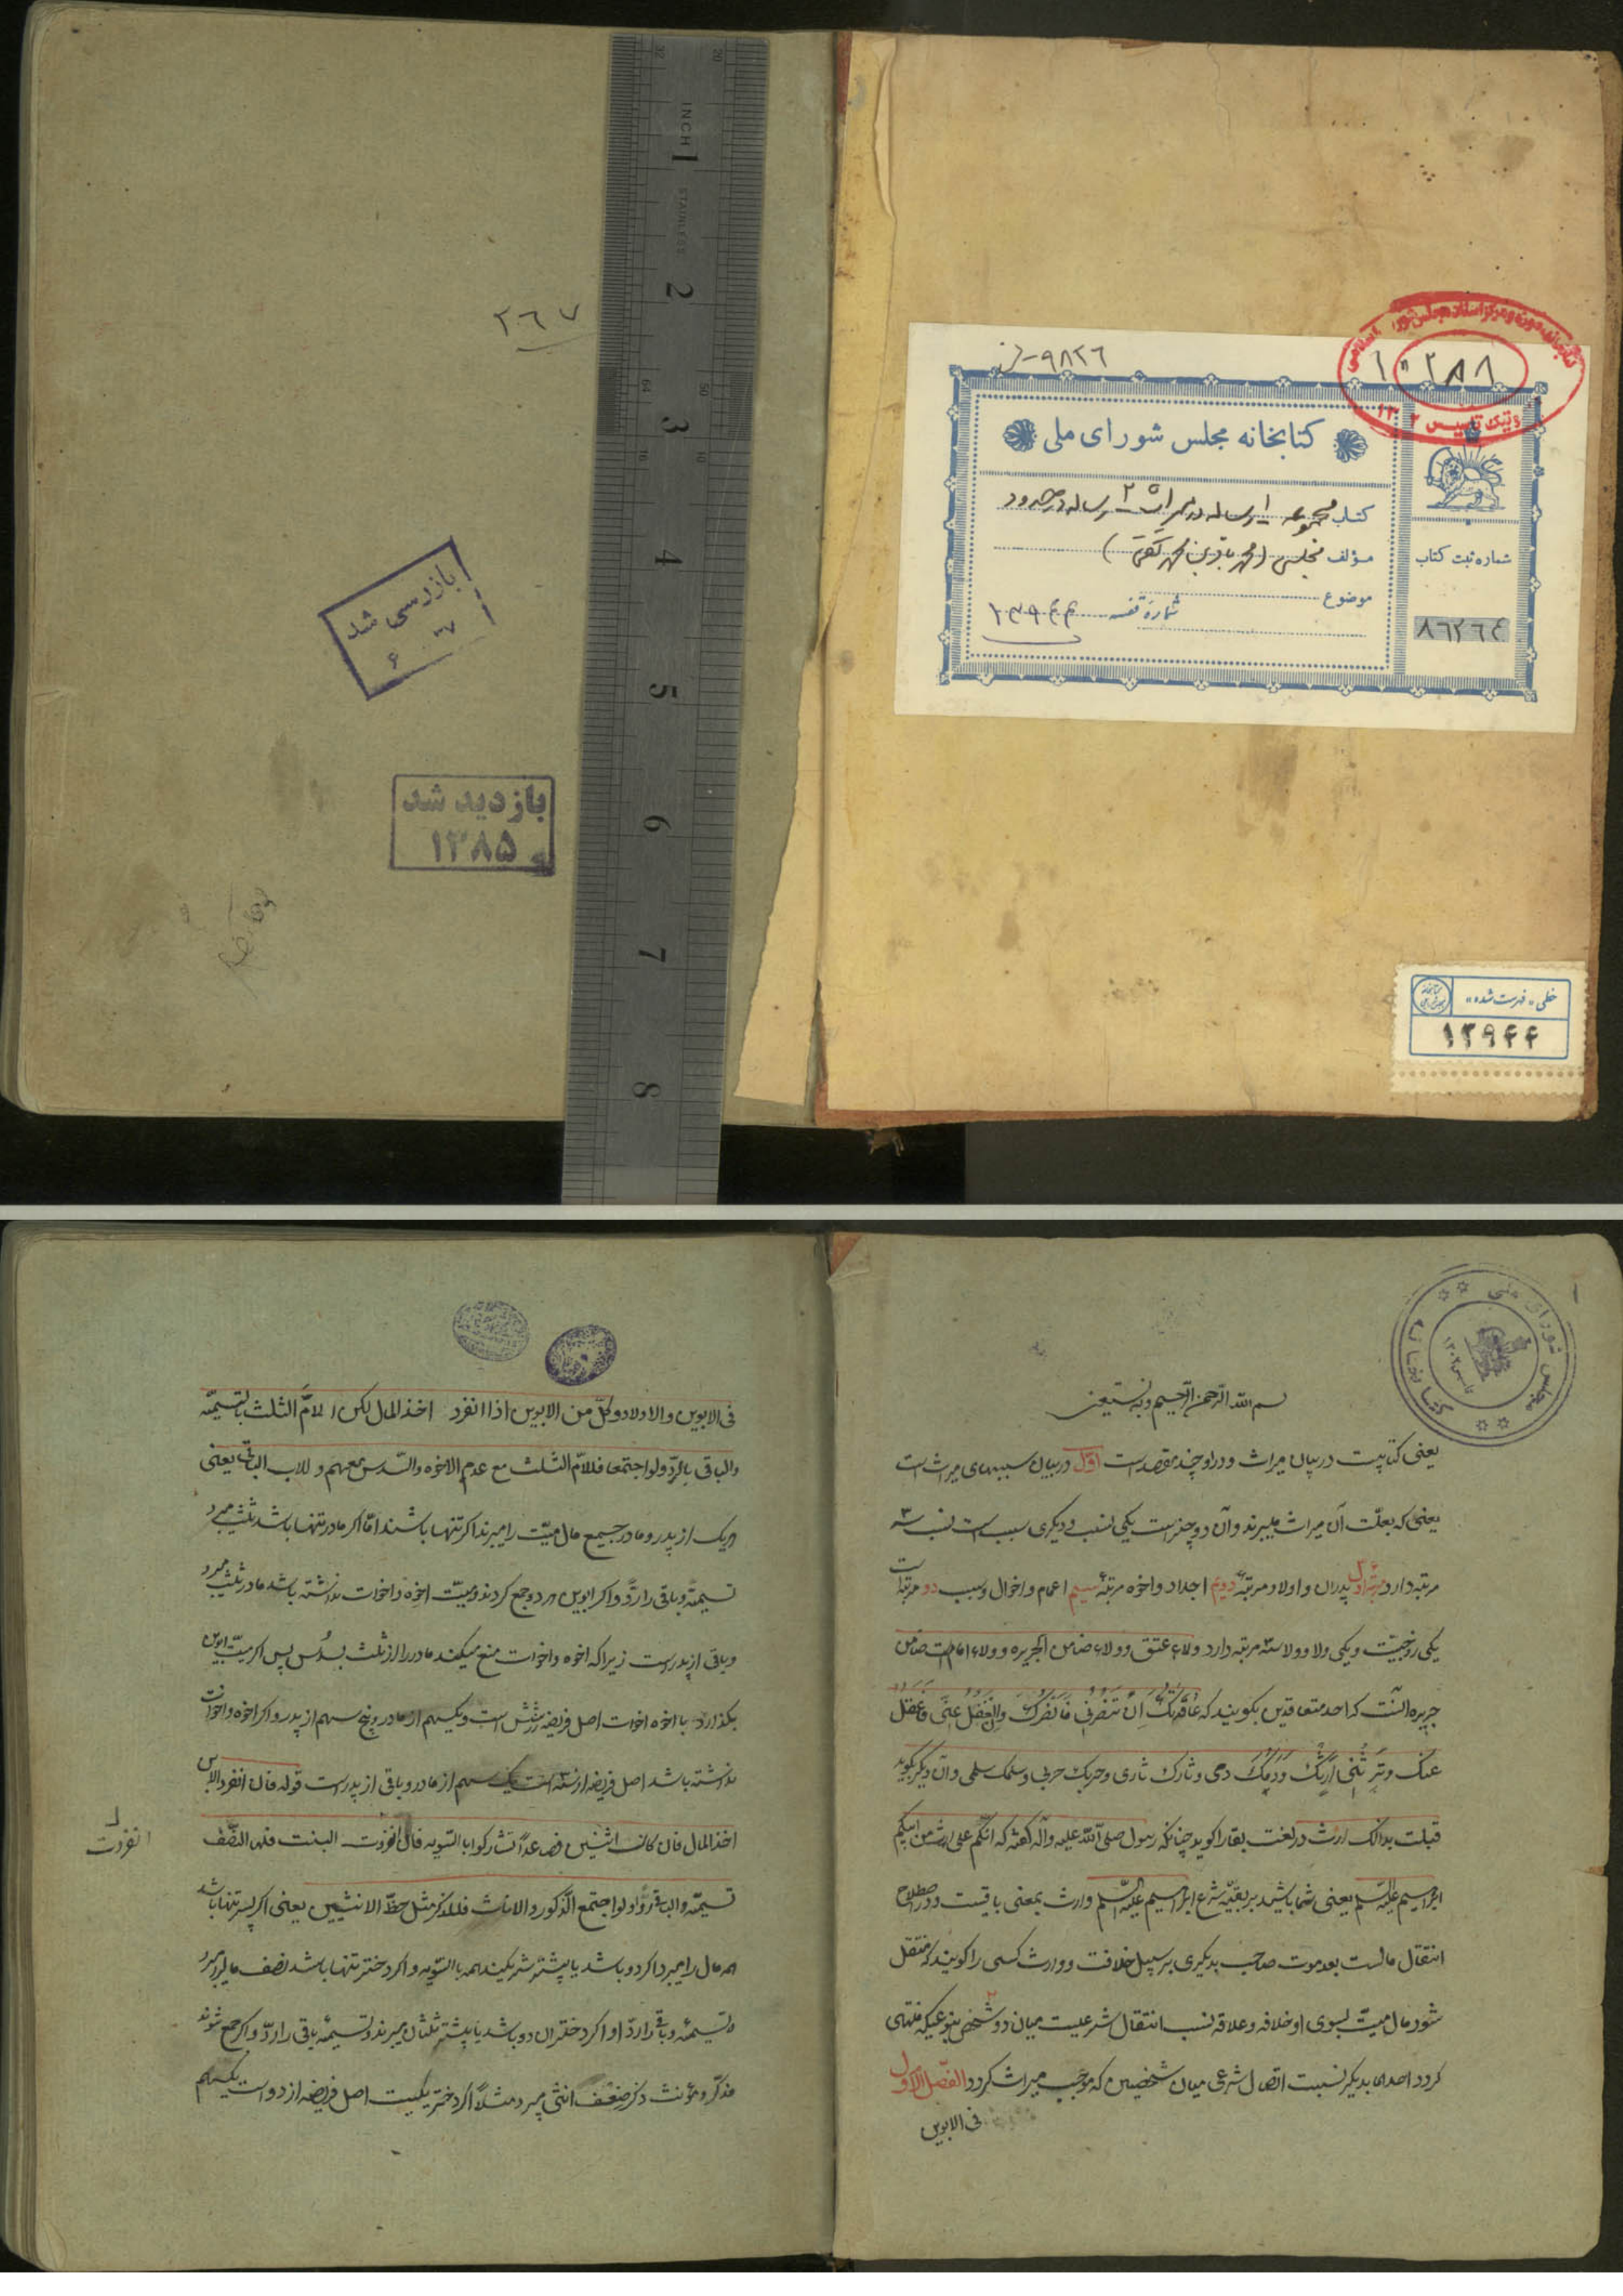 ۲۶۷
بازرسی شد
۶ ۳۷
بازدید شد
۱۳۸۵
INCH
STAINLESS
1
2
3
4
5
6
7
8
۹۸۲۶
۱۰۲۸۸
کتابخانه مجلس شورای ملی
کتاب مجموعه ۱- رساله در میراث ۲- رساله در حدود
مؤلف مجلسی (محمد باقر بن محمد تقی)
موضوع
شماره قفسه ۱۳۹۴۴
شماره ثبت کتاب
۸۶۲۶۴
خطی «فهرست شده»
۱۳۹۴۴
بسم الله الرحمن الرحیم وبه نستعین
یعنی کتابیست در بیان میراث و در او چند مقصد است اول در بیان سببهای میراث است
یعنی که بعلّت آن میراث میبرند و آن دو چیز است یکی نسب و دیگری سبب است نسب سه
مرتبه دارد مرتبه اول پدران و اولاد مرتبه دویم اجداد و اخوه مرتبه سیم اعمام و اخوال و سبب دو مرتبه است
یکی زوجیّت و یکی ولا و ولا سه مرتبه دارد ولاء عتق و ولاء ضامن الجریره و ولاء امامت ضامن
جریره آنست که احد متعاقدین بگویند که عاقدتک ان تنصرنی فانصرک و تعقل عنی و اعقل
عنک و ترثنی ارثک و دمک دمی و ثارک ثاری و حربک حربی و سلمک سلمی و آن دیگر بگوید
قبلت بدانک ارث در لغت بقا را گوید چنانکه رسول صلی الله علیه وآله گفته که انکم علی ارث من ابیکم
ابراهیم علیه السلم یعنی شما باشید بر بقیّه شرع ابراهیم علیه السلم و ارث بمعنی باقیست و در اصطلاح
انتقال مالست بعد موت صاحب بدیگری بر سبیل خلافت و وارث کسی را گویند که منتقل
شود مال میّت بسوی او خلافه و علاقه نسب انتقال شرعیست میان دو شخص بنوعیکه منتهی
گردد احدهما بدیگر نسبت اتصال شرعی میان شخصین که موجب میراث گردد الفصل الاول
فی الابوین
فی الابوین والاولاد وکلّ من الابوین اذا انفرد اخذ المال لکن للامّ الثلث بالتسمیّه
والباقی بالردّ ولو اجتمعا فللامّ الثلث مع عدم الاخوه والسّدس معهم و للاب الباقی یعنی
هریک از پدر و مادر جمیع مال میّت را میبرند اگر تنها باشند امّا اگر مادر تنها باشد ثلث میبرد
تسمیة و باقی را ردّ و اگر ابوین هر دو جمع گردند و میّت اخوه و اخوات نداشته باشد مادر ثلث میبرد
و باقی از پدرست زیرا که اخوه و اخوات منع میکند مادر را از ثلث بسُدس پس اگر میّت ابوین
بگذارد با اخوه اخوات اصل فریضه از شش است و یکسهم از مادر و پنج سهم از پدر و اگر اخوه و اخوات
نداشته باشد اصل فریضه از سه است یک سهم از مادر و باقی از پدرست قوله فان انفرد الابن
اخذ المال فان کانت اثنین فصاعداً تشارکوا بالسّویه فان انفردت البنت فلها النصّف
انفردت
تسمیّة والباقی ردّاً ولو اجتمع الذّکور والاناث فللذکر مثل حظّ الانثیین یعنی اگر پسر تنها باشد
همه مال را میبرد اگر دو باشد یا بیشتر شریکیند همه بالسّویه و اگر دختر تنها باشد نصف مال میبرد
تسمیّه و باقی را ردّاً و اگر دختران دو باشد یا بیشتر ثلثان میبرند و تسمیه باقی را ردّ و اگر جمع شوند
مذکّر و مؤنث ذکر ضِعْف انثی میبرد مثلاً اگر دختر یکیست اصل فریضه از دو است یکسهم